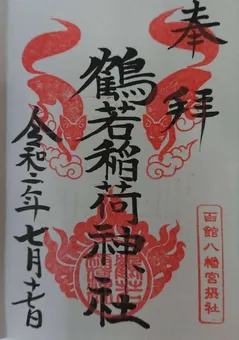 奉拝
鶴若稲荷神社
令和二年七月十七日
函館八幡宮摂社